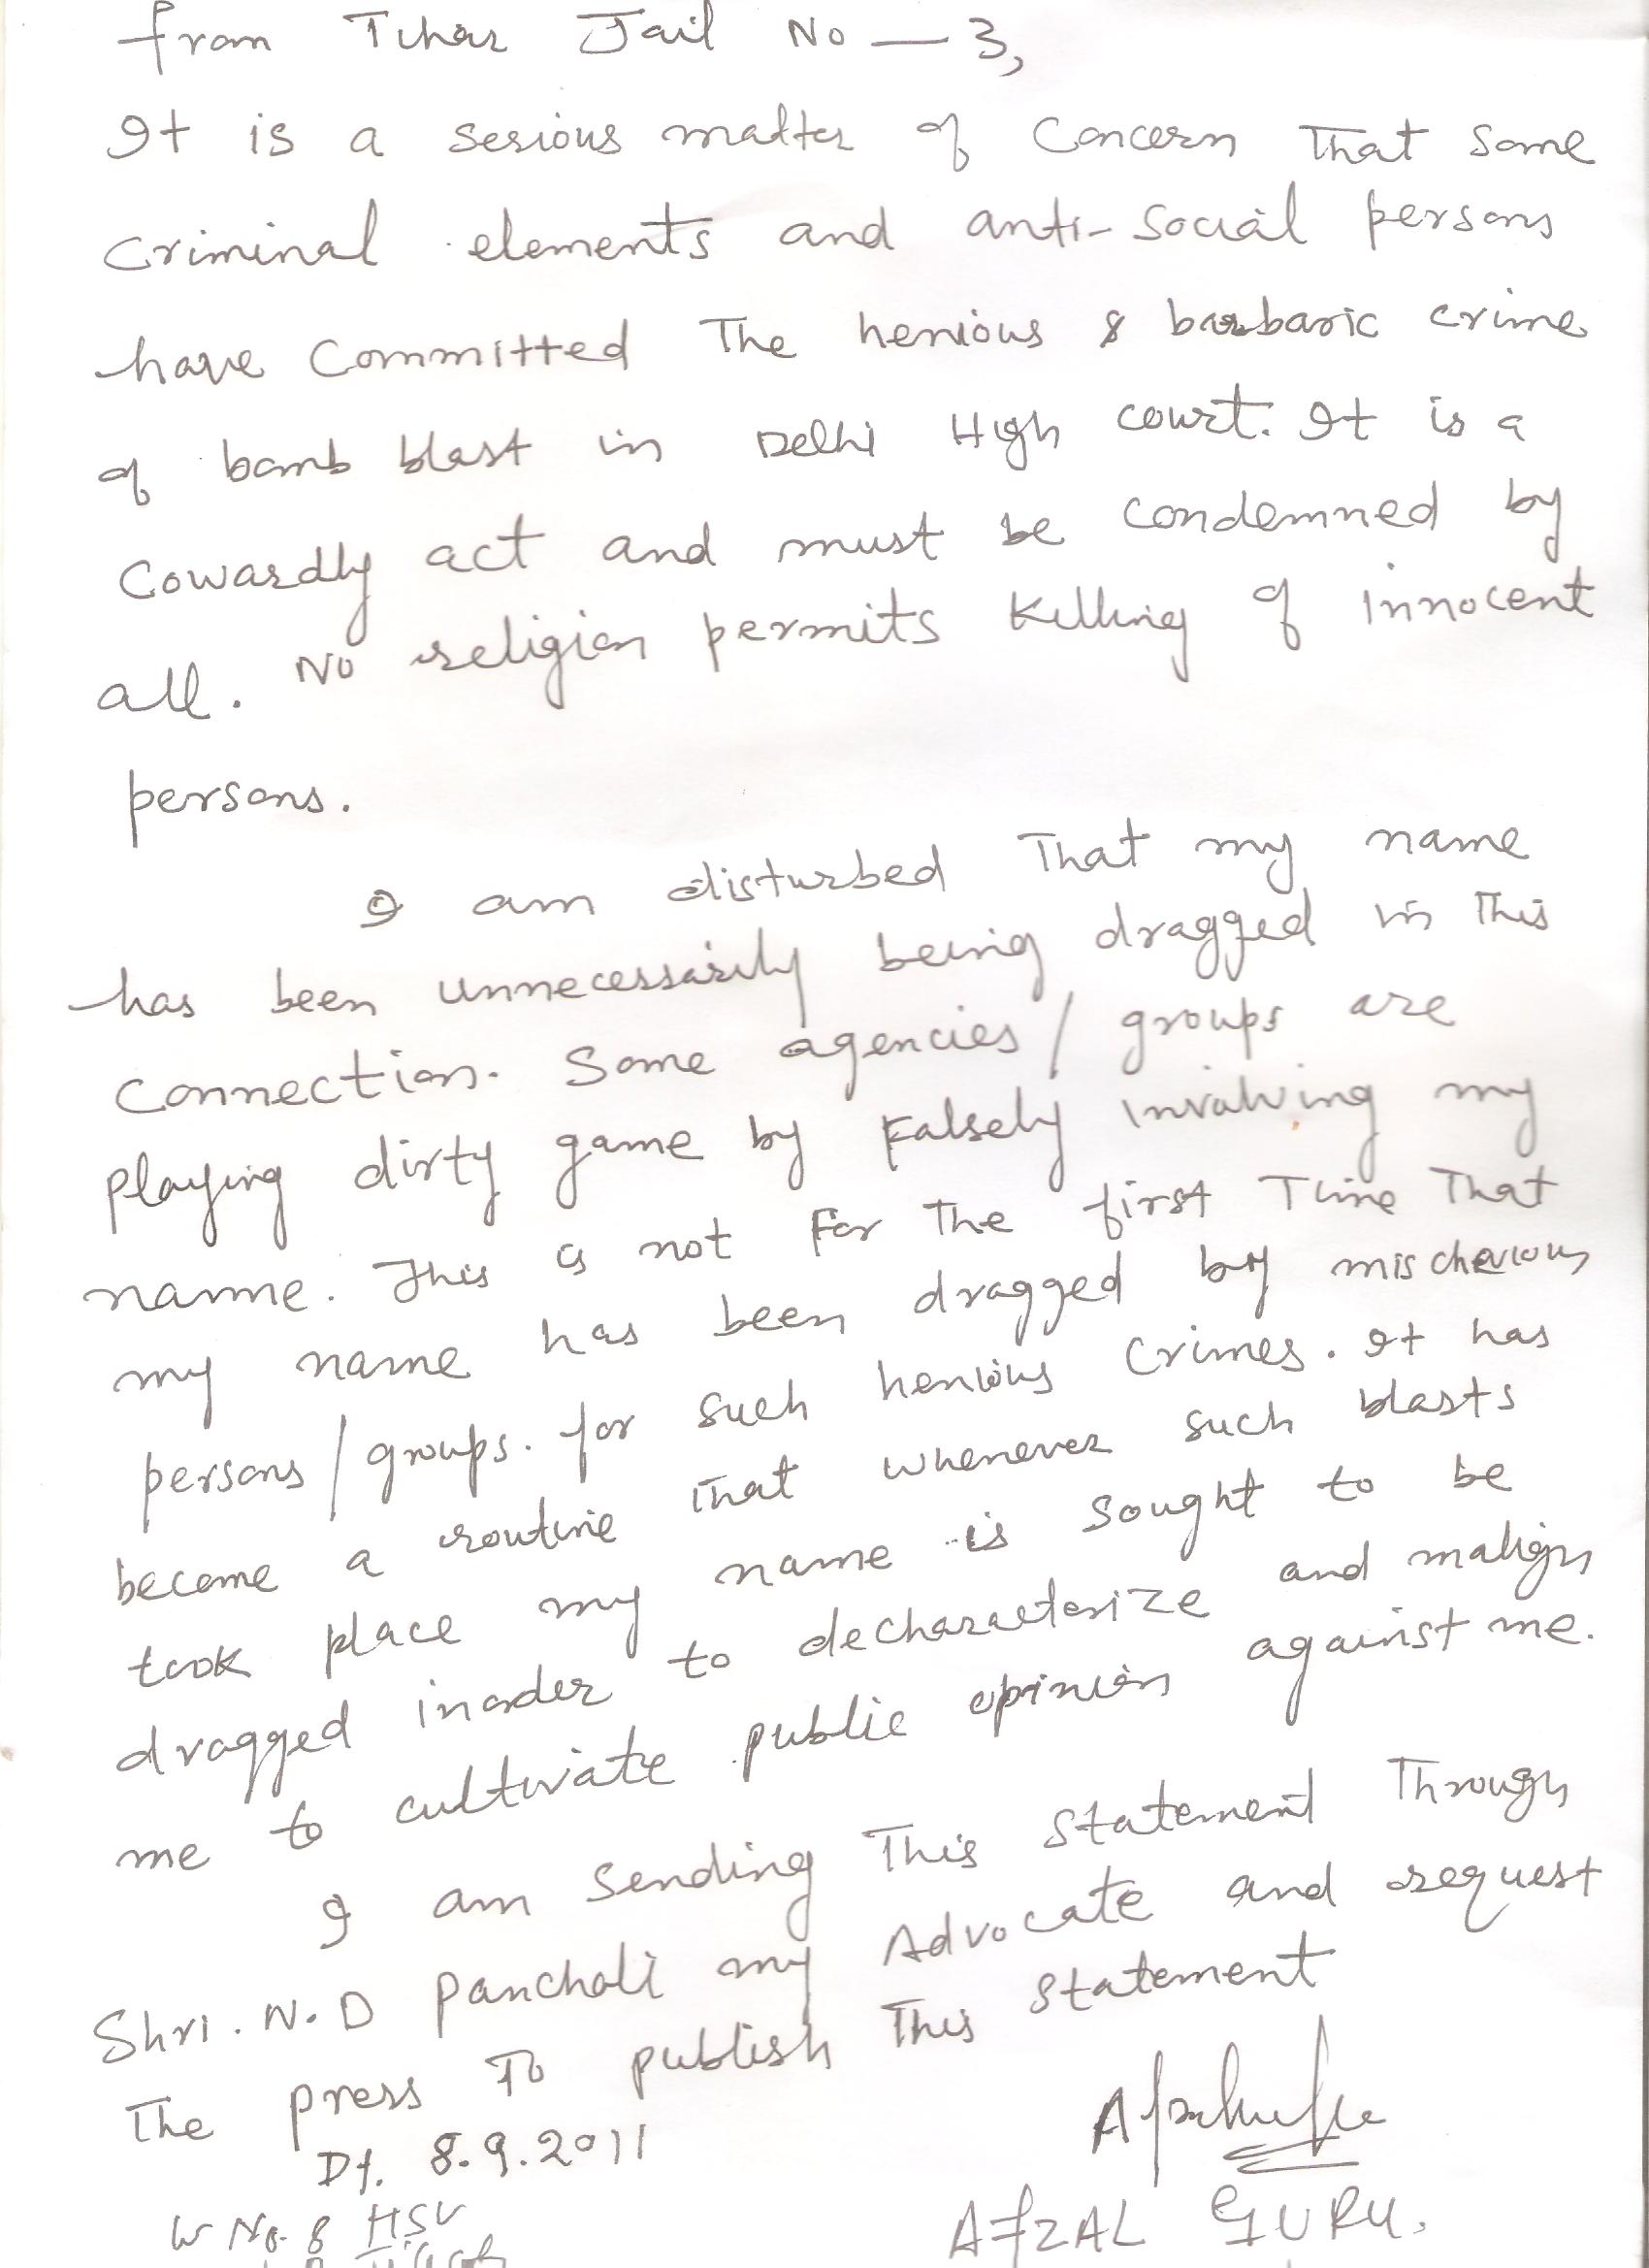 from Tihar Jail No — 3,
It is a serious matter of Concern That Some
Criminal elements and anti-Social persons
have Committed The henious & barbaric crime
of bomb blast in Delhi High court. It is a
Cowardly act and must be condemned by
all. No religion permits killing of innocent
persons.
I am disturbed That my name
has been unnecessarily being dragged in This
Connection. Some agencies / groups are
playing dirty game by Falsely involving my
name. This is not For The first Time That
my name has been dragged by mischevious
persons / groups. for such henious Crimes. It has
become a routine That whenever such blasts
took place my name is sought to be
dragged inorder to decharacterize and malign
me to cultivate public opinion against me.
I am Sending This Statement Through
Shri. N.D Pancholi my Advocate and request
The press To publish This Statement
Dt. 8.9.2011
AFZAL GURU.
W No. 8 HSW